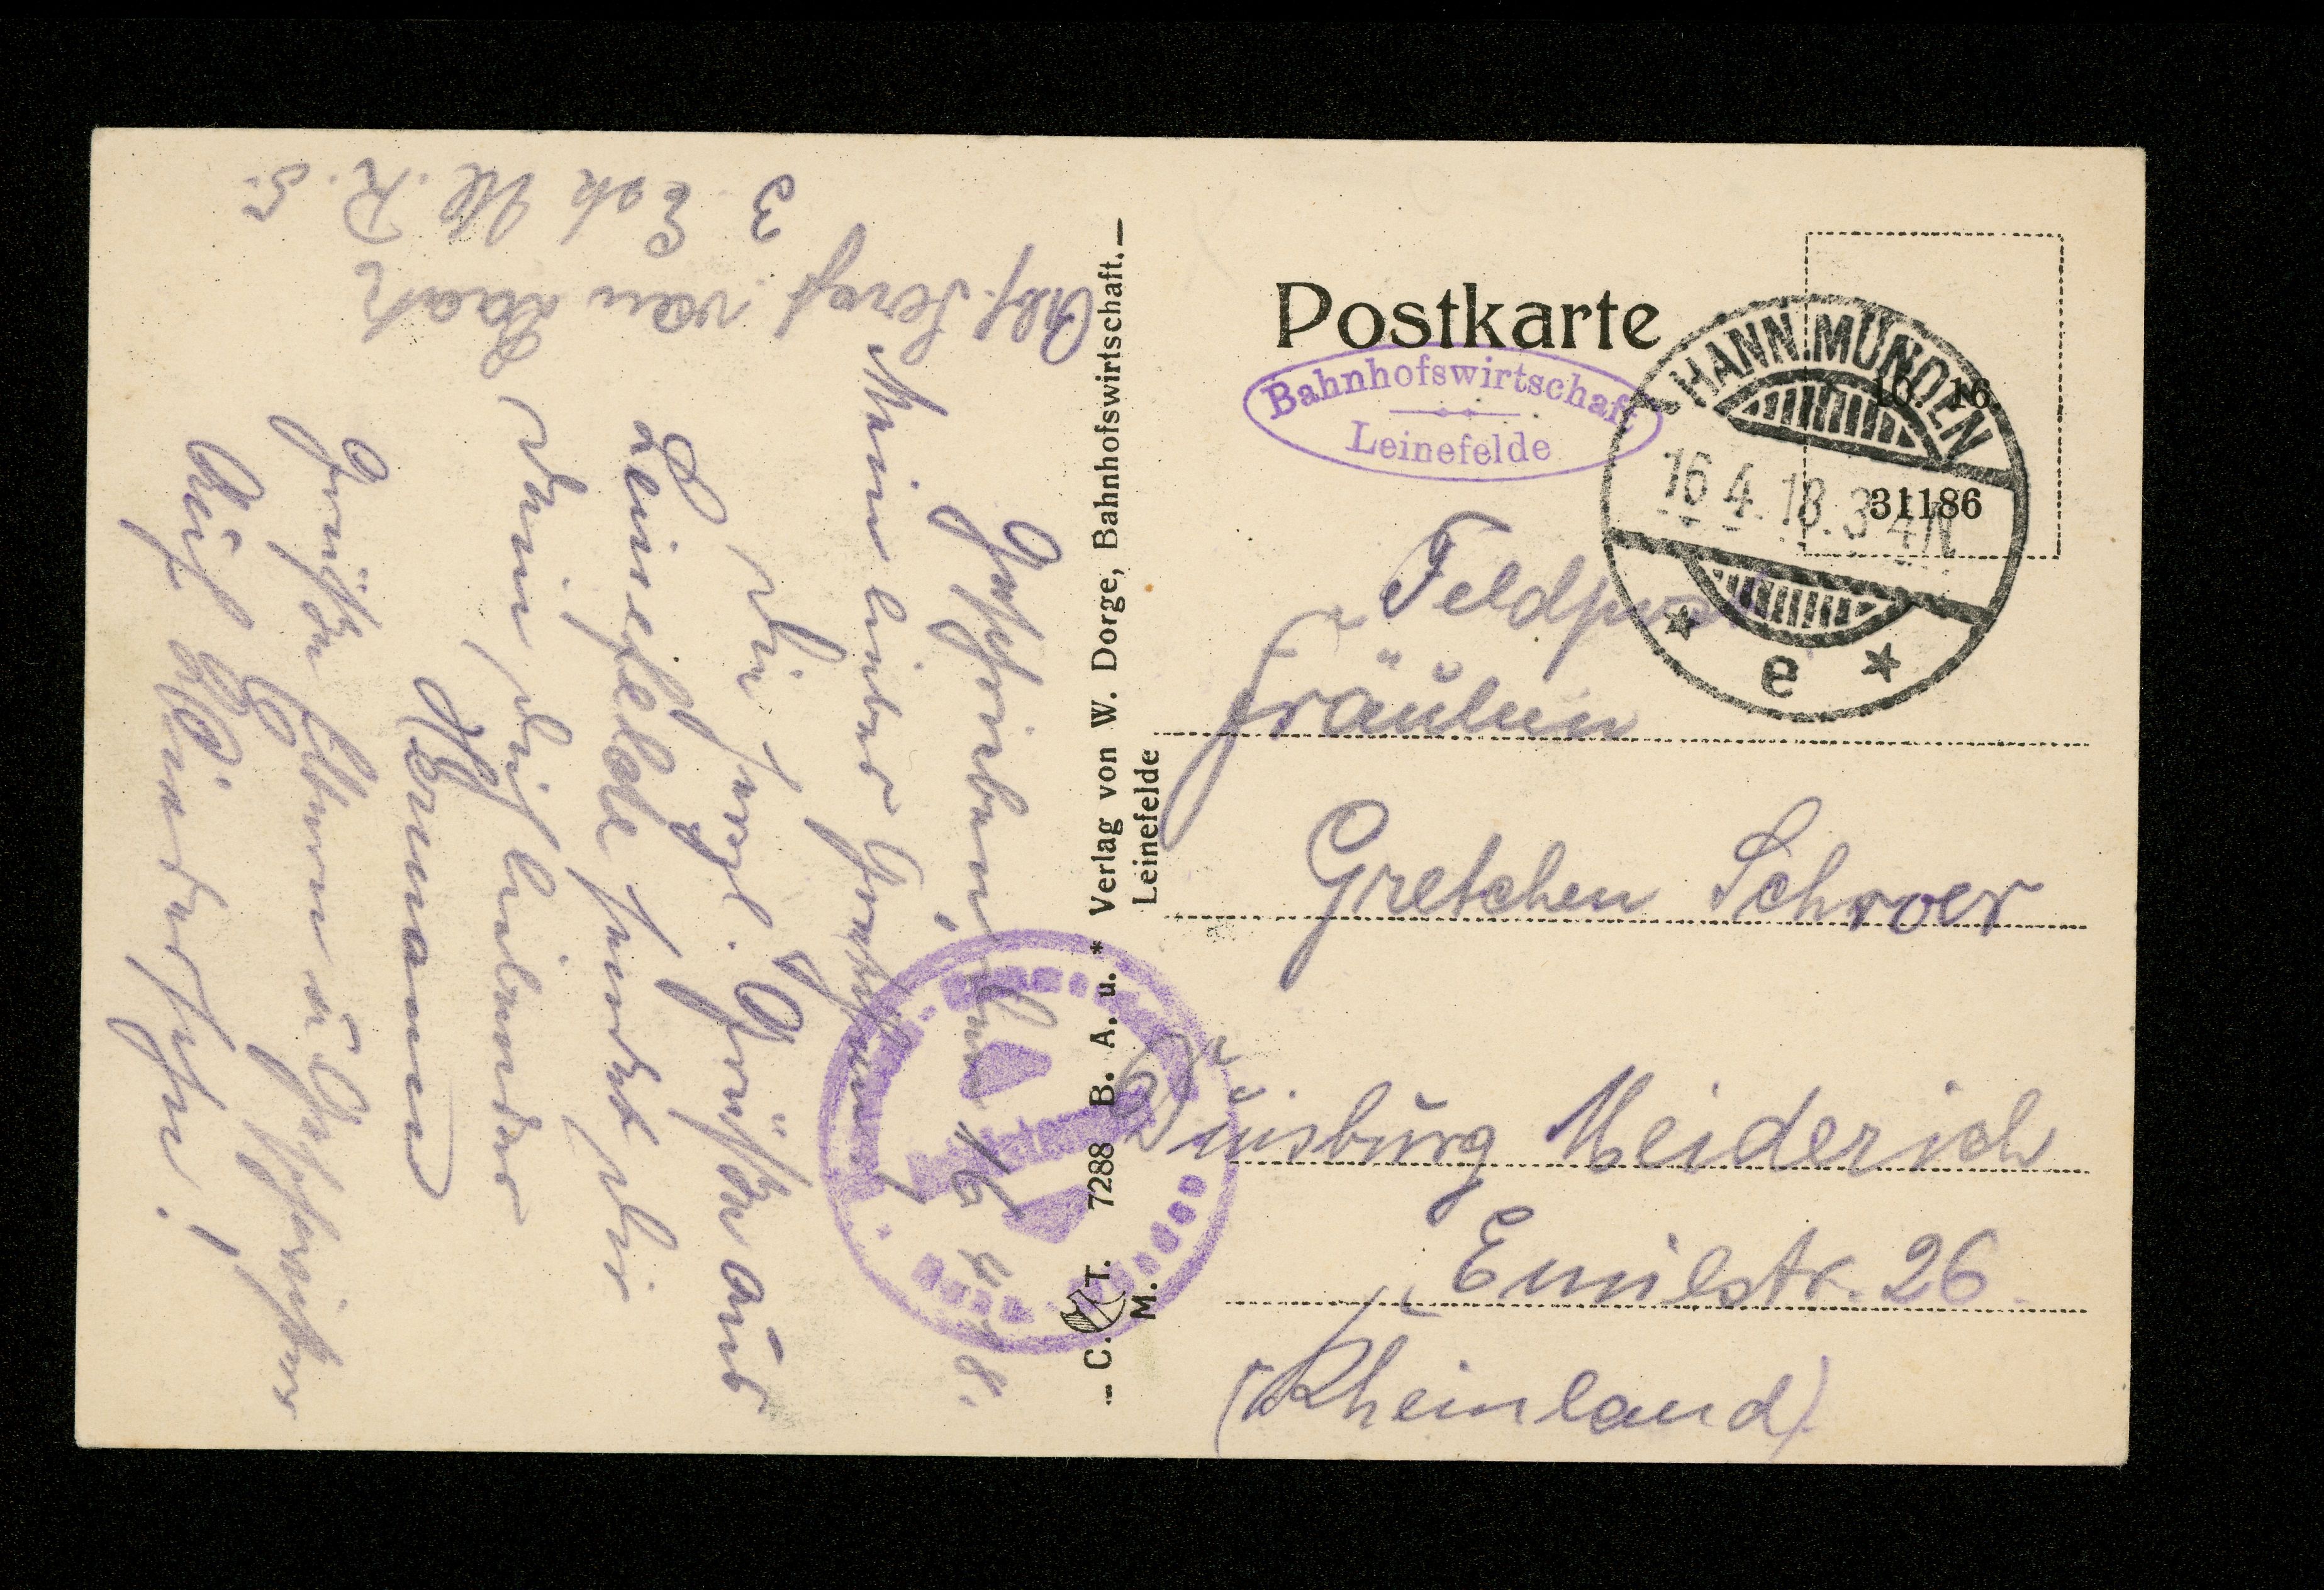 Postkarte
Bahnhofswirtschaft
Leinefelde
HANN. MÜNDEN
16 4.18.3-4 N
* a *
10. 16.
31186
Feldpost
Fräulein
Gretchen Schroer
Duisburg Meiderich
Emilstr. 26
(Rheinland)
— C. T. 7288 B. A. u. * Verlag von W. Dorge, Bahnhofswirtschaft.—
M. Leinefelde
Abs. Seref. van
3. Esk. R. 5.
Geschrieben, den 16 4 18.
Mein lieber
Die herzl. Grüße aus
Leinefelde sendet dir
dein dich liebender
Hermann
Grüße Eltern u Geschwister
Auf Wiedersehn!